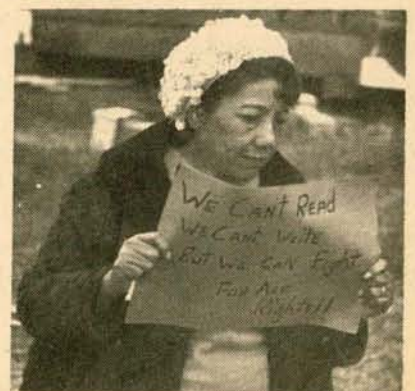 WE CANT READ
WE CANT WRITE
BUT WE CAN FIGHT
FOR ARE
RIGHTS!!